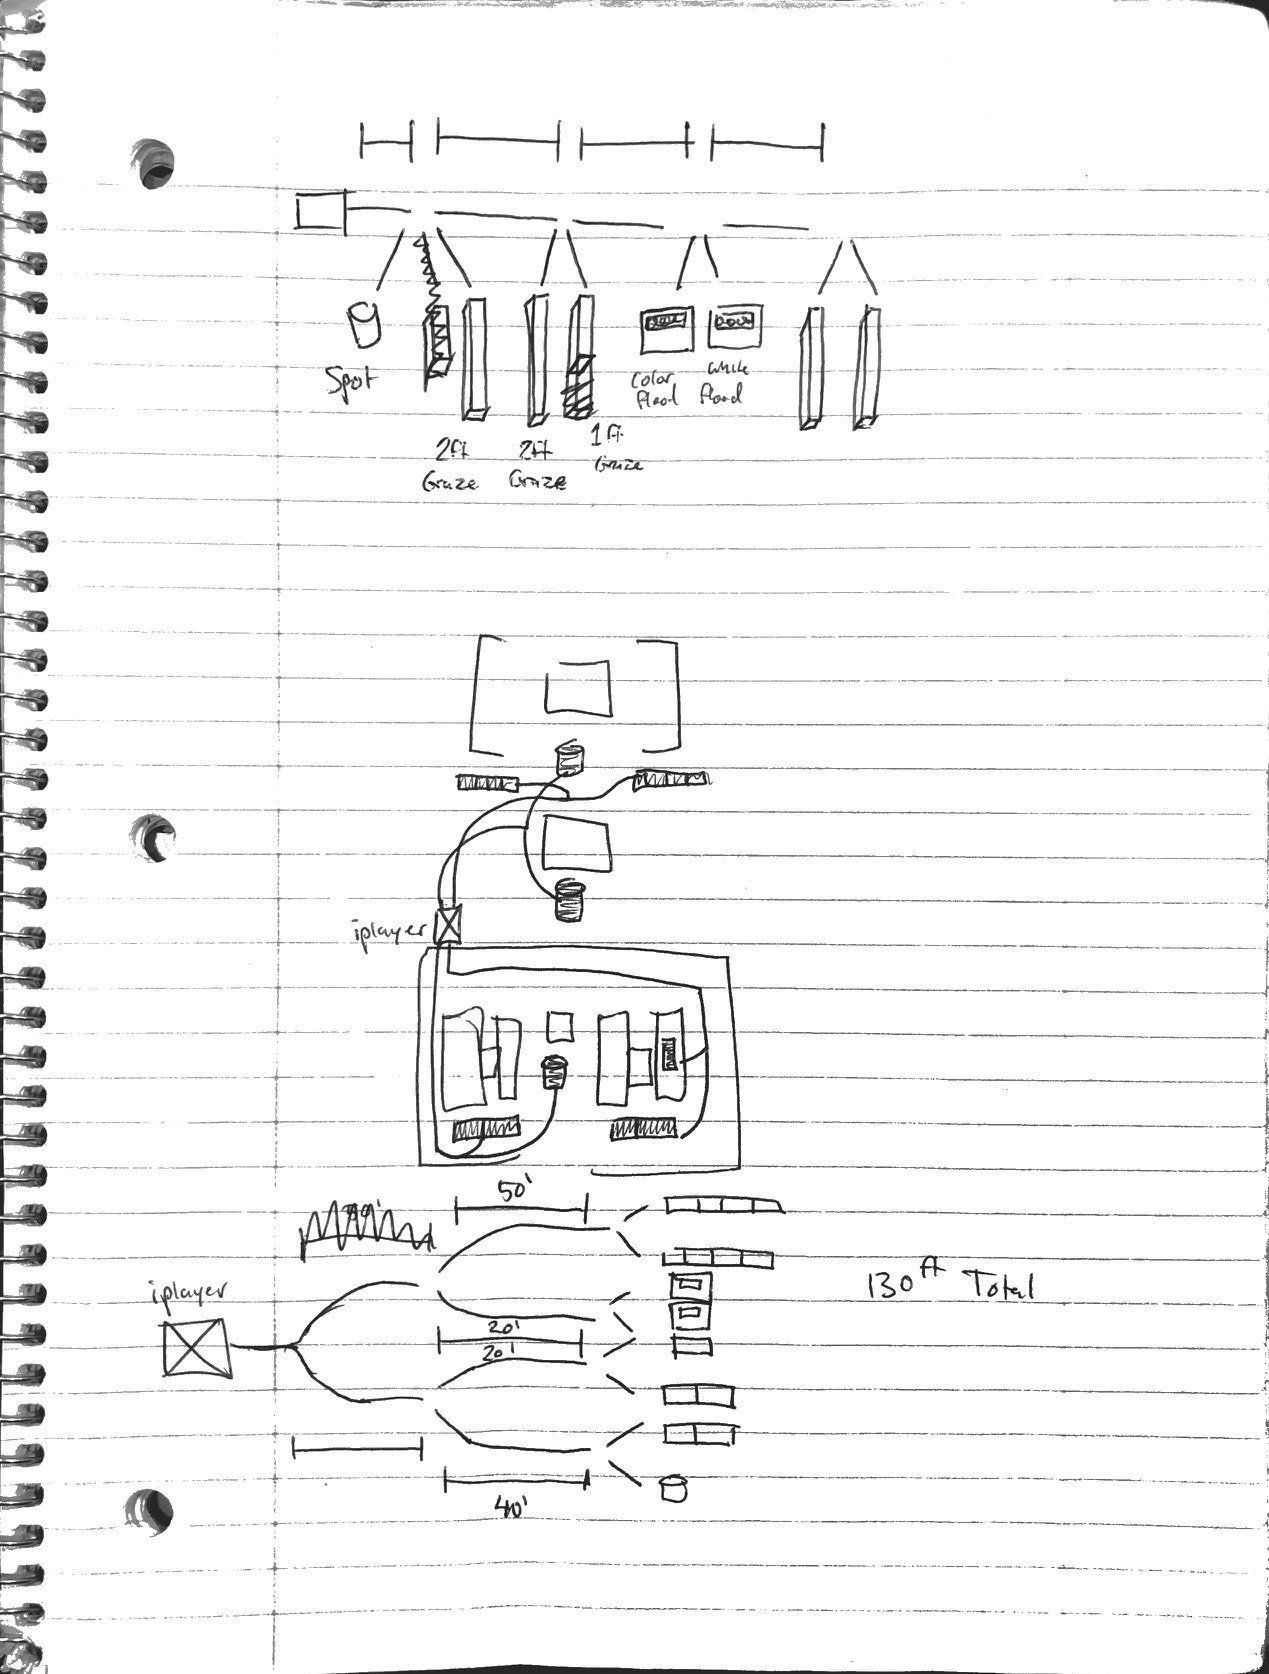 Spot
color
flood
white
flood
2ft
Graze
2ft
Graze
1ft
Graze
iplayer
50'
iplayer
130ft Total
20'
20'
40'